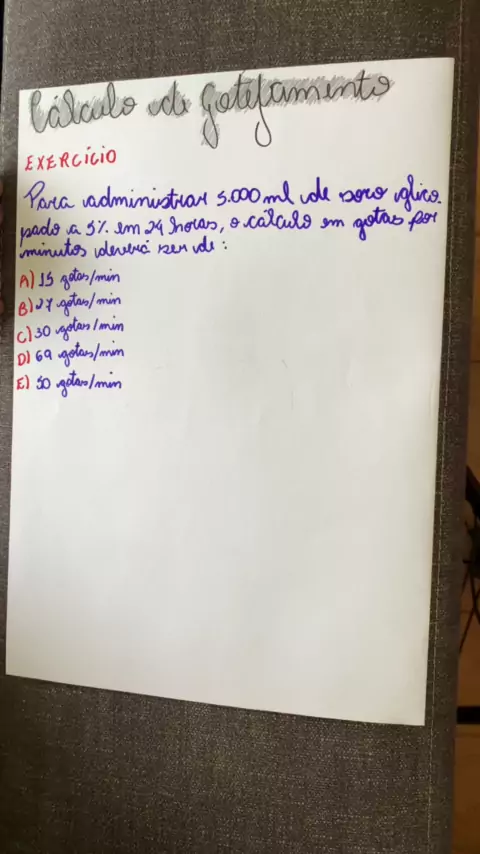 Cálculo de gotejamento
EXERCÍCIO
Para administrar 5.000 ml de soro glico.
sado a 5% em 24 horas, o cálculo em gotas por
minutos deverá ser de :
A) 15 gotas/min
B) 27 gotas/min
C) 30 gotas/min
D) 69 gotas/min
E) 50 gotas/min